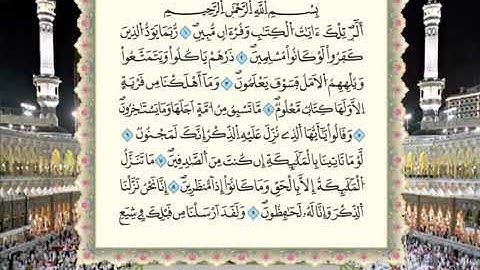 بِسْمِ اللَّهِ الرَّحْمَٰنِ الرَّحِيمِ
أَلَٓرۖ تِلْكَ ءَايَٰتُ الْكِتَٰبِ وَقُرْءَانٍ مُّبِينٍۖ ١ رُّبَمَا يَوَدُّ الذِينَ
كَفَرُوا لَوْ كَانُوا مُسْلِمِينَۖ ٢ ذَرْهُمْ يَاكُلُوا وَيَتَمَتَّعُوا
وَيُلْهِهِمُ الَامَلُ فَسَوْفَ يَعْلَمُونَۖ ٣ وَمَا أَهْلَكْنَا مِن قَرْيَةٍ
الَّا وَلَهَا كِتَابٌ مَّعْلُومٌۖ ٤ مَّا تَسْبِقُ مِنُ امَّةٍ اَجَلَهَا وَمَا يَسْتَٰخِرُونَۖ
٥ وَقَالُوا يَٰأَيُّهَا الَّذِي نُزِّلَ عَلَيْهِ الذِّكْرُ إِنَّكَ لَمَجْنُونٌ ٦
لَّوْ مَا تَاتِينَا بِالْمَلَٰئِكَةِ إِن كُنتَ مِنَ الصَّٰدِقِينَۖ ٧ مَا تَنَزَّلُ
الْمَلَٰئِكَةُ إِلَّا بِالْحَقِّ وَمَا كَانُوا إِذًا مُّنظَرِينَۖ ٨ إِنَّا نَحْنُ نَزَّلْنَا
الذِّكْرَ وَإِنَّا لَهُ لَحَٰفِظُونَۖ ٩ وَلَقَدَ ارْسَلْنَا مِن قَبْلِكَ فِي شِيَعِ